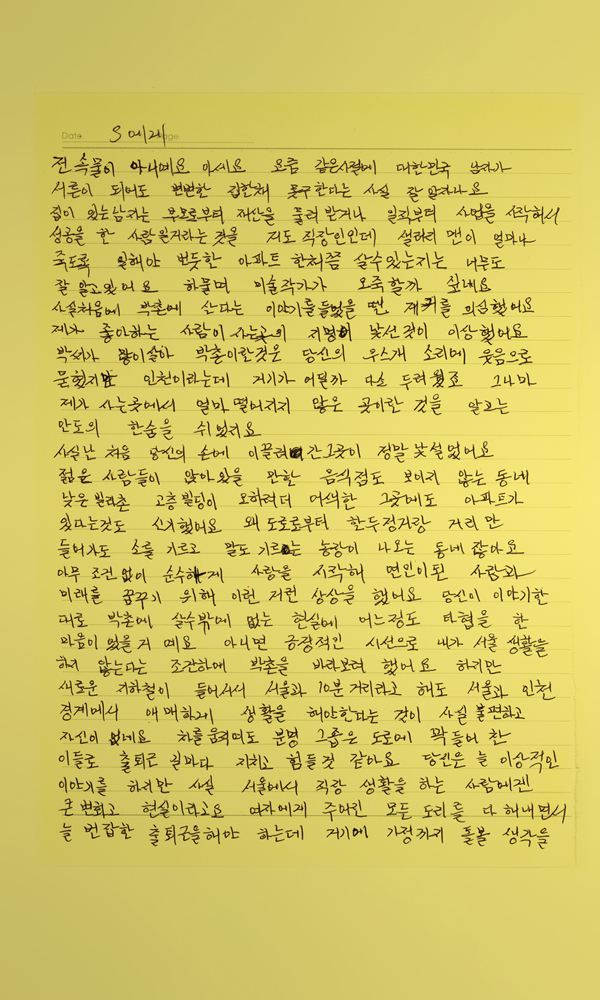 Date. S에게 age.
전 속물이 아니예요 아세요 요즘 같은시절에 대한민국 남자가
서른이 되어도 변변한 집한채 못구한다는 사실 잘 알자나요
집이 있는남자는 부모로부터 재산을 물려 받거나 일찍부터 사업을 시작해서
성공을 한 사람일거라는 것을 저도 직장인인데 샐러리 맨이 얼마나
죽도록 일해야 번듯한 아파트 한채쯤 살수있는지는 너무도
잘 알고있어요 하물며 미술작가가 오죽할까 싶네요
사실처음에 박촌에 산다는 이야기를들었을 땐 제귀를 의심했어요
제가 좋아하는 사람이 사는곳의 지명이 낯선것이 이상했어요
박씨가 많이살아 박촌이란것은 당신의 우스개 소리에 웃음으로
묻혔지만 인천이라는데 거기가 어딜까 다소 두려웠죠 그나마
제가 사는곳에서 얼마 떨어지지 않은 곳이란 것을 알고는
안도의 한숨을 쉬었지요
사실난 처음 당신의 손에 이끌려 간그곳이 정말 낯설었어요
젊은 사람들이 앉아있을 만한 음식점도 보이지 않는 동네
낮은 빌라촌 고층빌딩이 오히려더 어색한 그곳에도 아파트가
있다는것도 신기했어요 왜 도로로부터 한두정거장 거리만
들어가도 소를 기르고 말도 기르는 농장이 나오는 동네 잖아요
아무 조건없이 순수하게 사랑을 시작해 연인이된 사람과
미래를 꿈꾸기 위해 이런 저런 상상을 했어요 당신이 이야기한
대로 박촌에 살수밖에 없는 현실에 어느정도 타협을 한
마음이 있을거 예요 아니면 긍정적인 시선으로 내가 서울 생활을
하지 않는다는 조건하에 박촌을 바라보려 했어요 하지만
새로운 지하철이 들어서서 서울과 10분 거리라고 해도 서울과 인천
경계에서 애매하게 생활을 해야한다는 것이 사실 불편하고
자신이 없네요 차를 움직여도 분명 그좁은 도로에 꽉들어 찬
이들로 출퇴근 길마다 지치고 힘들것 같아요 당신은 늘 이상적인
이야기를 하지만 사실 서울에서 직장 생활을 하는 사람에겐
큰 변화고 현실이라고요 여자에게 주어진 모든 도리를 다 해내면서
늘 번잡한 출퇴근을해야 하는데 거기에 가정까지 돌볼 생각을